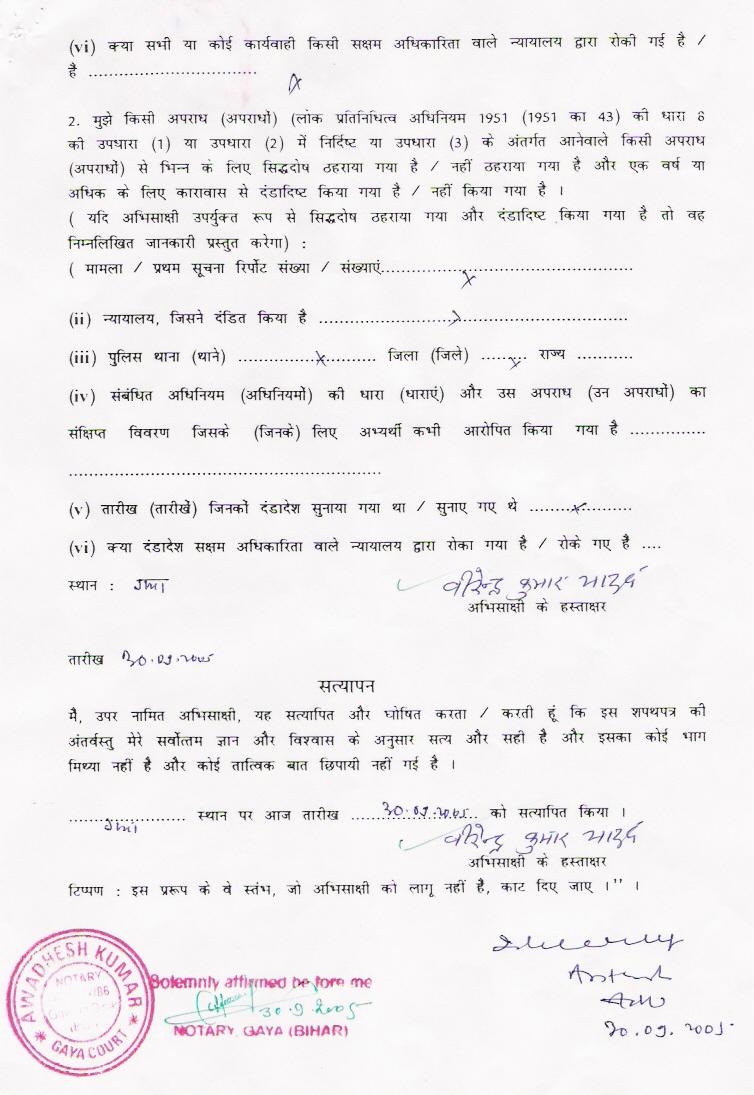 (vi) क्या सभी या कोई कार्यवाही किसी सक्षम अधिकारिता वाले न्यायालय द्वारा रोकी गई है /
है ..................................
x
2. मुझे किसी अपराध (अपराधों) (लोक प्रतिनिधित्व अधिनियम 1951 (1951 का 43) की धारा 8
की उपधारा (1) या उपधारा (2) में निर्दिष्ट या उपधारा (3) के अंतर्गत आनेवाले किसी अपराध
(अपराधों) से भिन्न के लिए सिद्धदोष ठहराया गया है / नहीं ठहराया गया है और एक वर्ष या
अधिक के लिए कारावास से दंडादिष्ट किया गया है / नहीं किया गया है ।
( यदि अभिसाक्षी उपर्युक्त रूप से सिद्धदोष ठहराया गया और दंडादिष्ट किया गया है तो वह
निम्नलिखित जानकारी प्रस्तुत करेगा) :
( मामला / प्रथम सूचना रिर्पोट संख्या / संख्याएं..................x..................
(ii) न्यायालय, जिसने दंडित किया है ..................x..................
(iii) पुलिस थाना (थाने) ...............x......... जिला (जिले) ......x.. राज्य ...........
(iv) संबंधित अधिनियम (अधिनियमों) की धारा (धाराएं) और उस अपराध (उन अपराधों) का
संक्षिप्त विवरण जिसके (जिनके) लिए अभ्यर्थी कभी आरोपित किया गया है ...............
...............................................................
(v) तारीख (तारीखें) जिनकों दंडादेश सुनाया गया था / सुनाए गए थे .........x..........
(vi) क्या दंडादेश सक्षम अधिकारिता वाले न्यायालय द्वारा रोका गया है / रोके गए है ....
स्थान : गया वीरेन्द्र कुमार यादव
अभिसाक्षी के हस्ताक्षर
तारीख 30.09.2005
सत्यापन
मै, उपर नामित अभिसाक्षी, यह सत्यापित और घोषित करता / करती हूं कि इस शपथपत्र की
अंतर्वस्तु मेरे सर्वोत्तम ज्ञान और विश्वास के अनुसार सत्य और सही है और इसका कोई भाग
मिथ्या नहीं है और कोई तात्विक बात छिपायी नहीं गई है ।
....................... स्थान पर आज तारीख ....30.09.2005.... को सत्यापित किया ।
गया वीरेन्द्र कुमार यादव
अभिसाक्षी के हस्ताक्षर
टिप्पण : इस प्ररूप के वे स्तंभ, जो अभिसाक्षी को लागू नहीं है, काट दिए जाए ।" ।
AWADHESH KUMAR
NOTARY
GAYA COURT
Solemnly affirmed before me
30.9.2005
NOTARY, GAYA (BIHAR)
Adv
30.09.2005